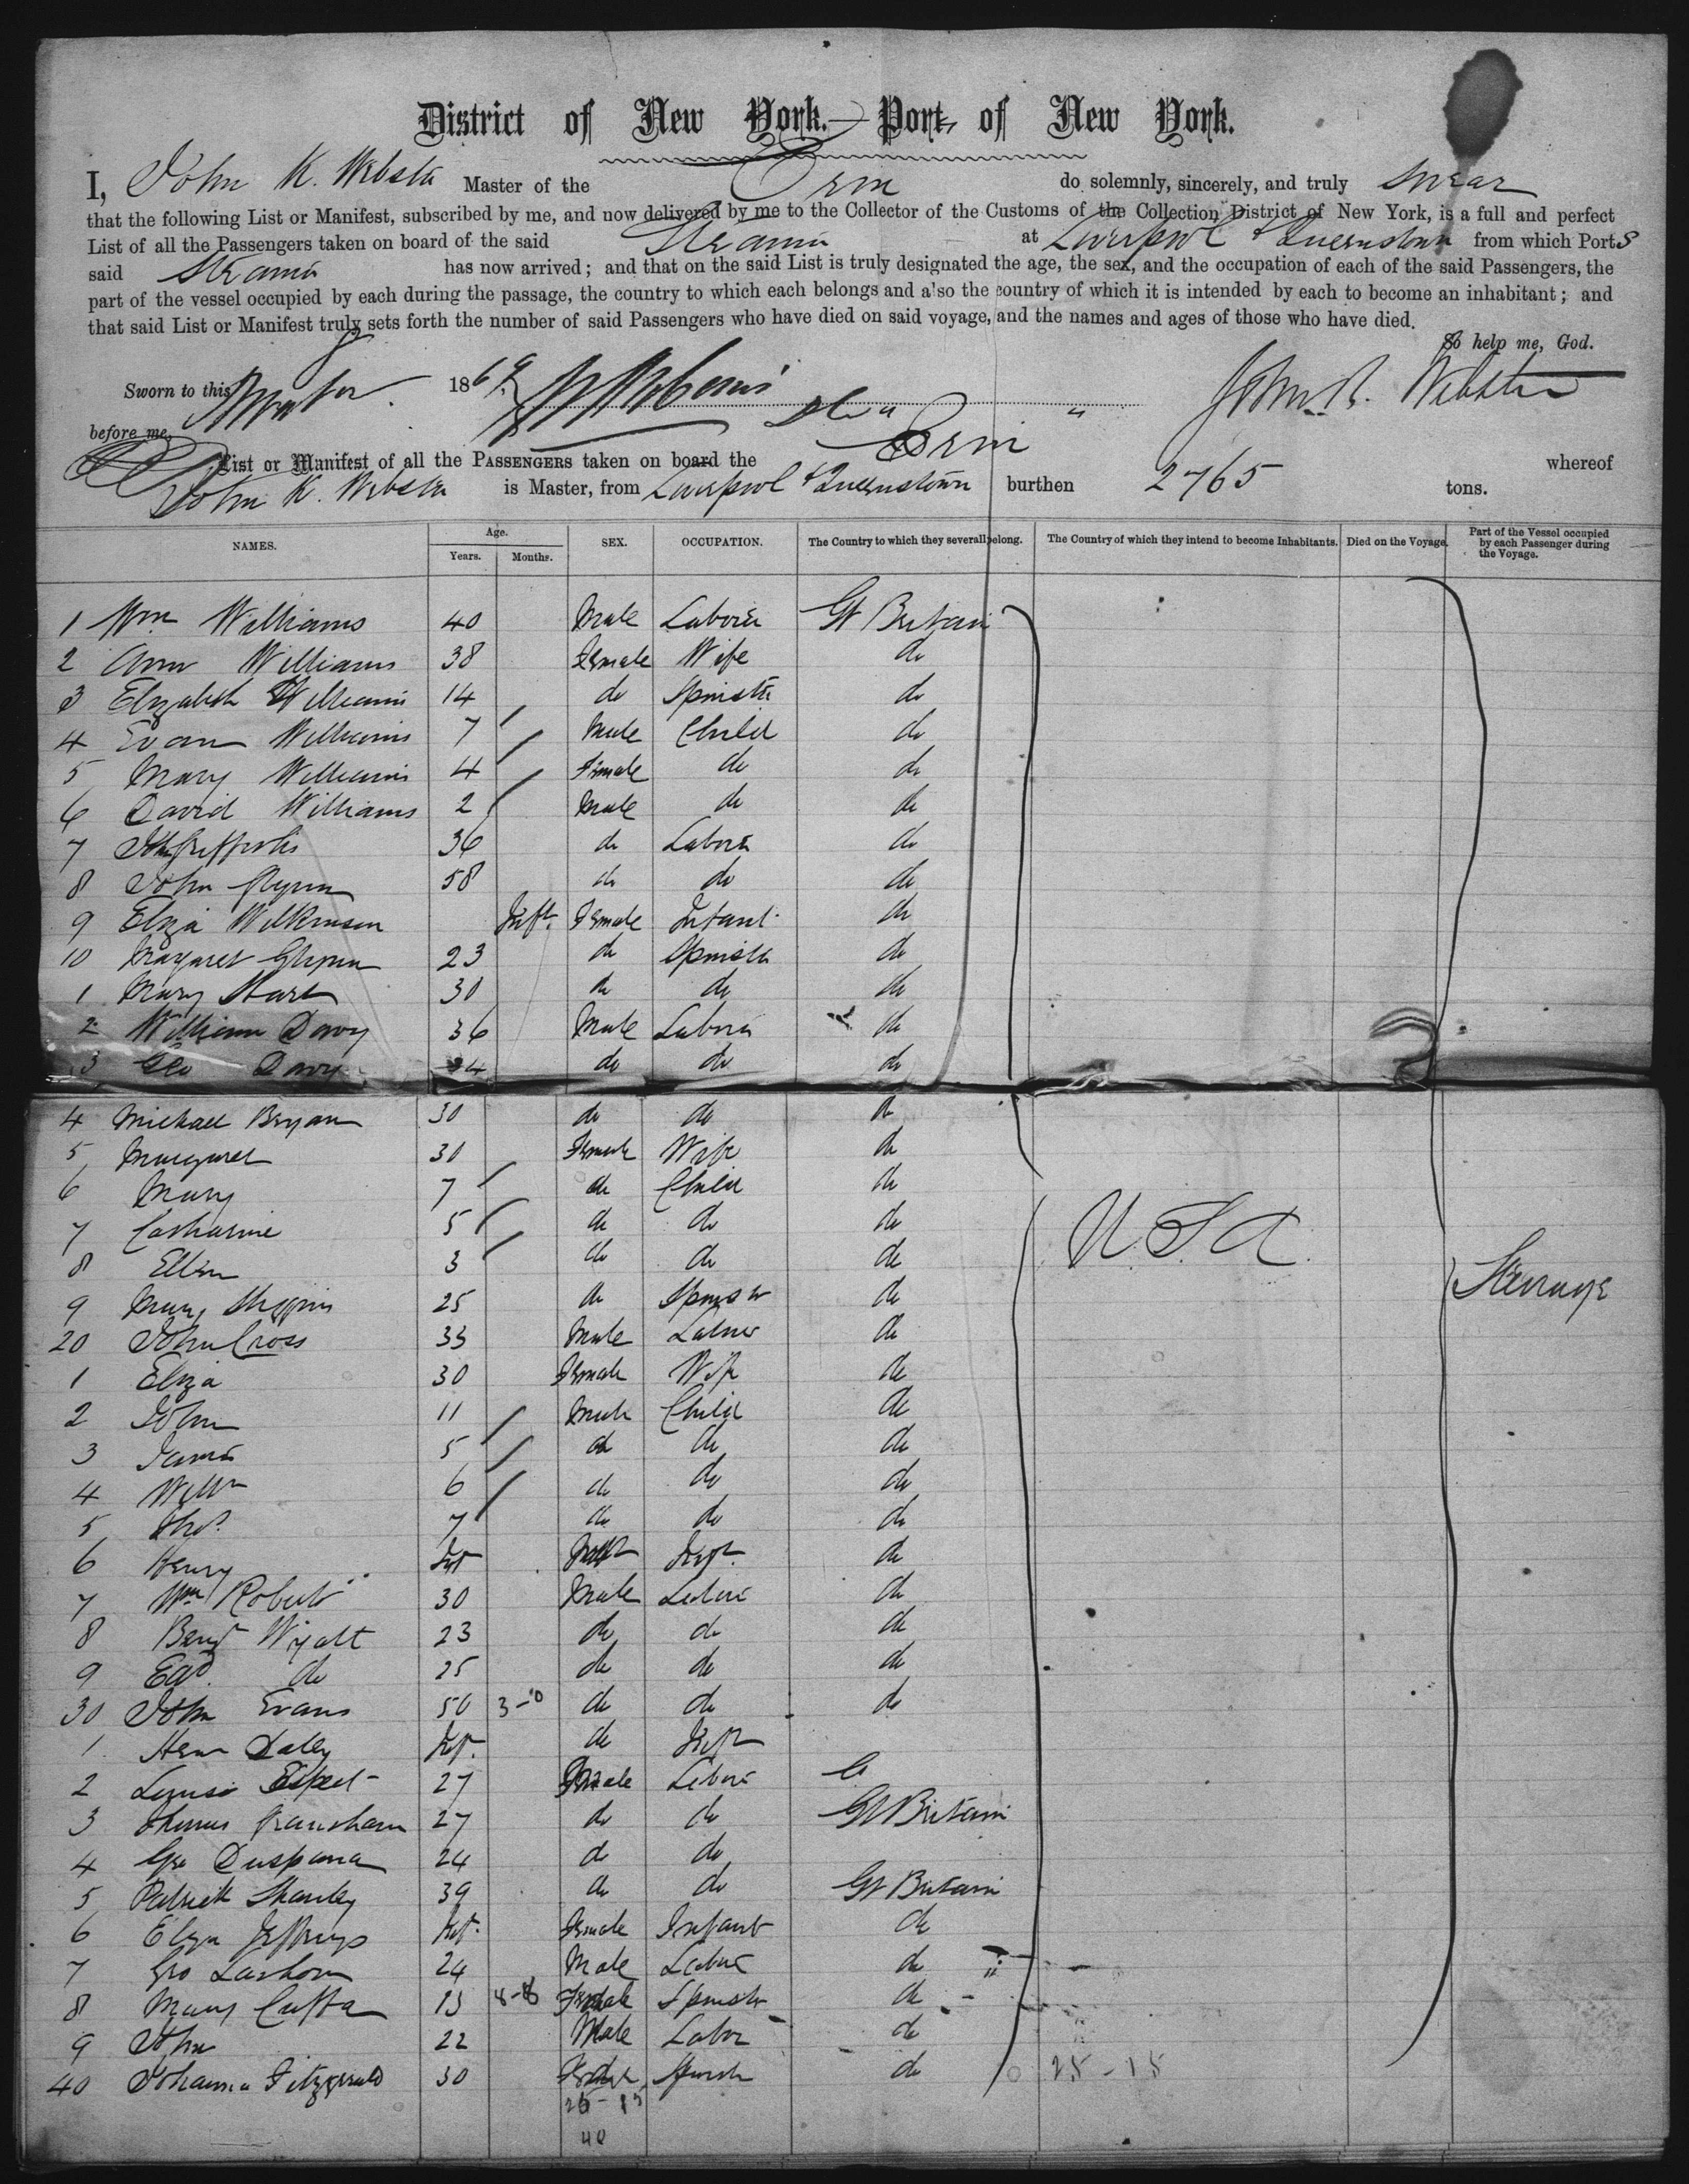 District of New York.—Port of New York.
I, John K. Webster Master of the Erin do solemnly, sincerely, and truly swear
that the following List or Manifest, subscribed by me, and now delivered by me to the Collector of the Customs of the Collection District of New York, is a full and perfect
List of all the Passengers taken on board of the said Steamer at Liverpool & Queenstown from which Ports
said Steamer has now arrived; and that on the said List is truly designated the age, the sex, and the occupation of each of the said Passengers, the
part of the vessel occupied by each during the passage, the country to which each belongs and also the country of which it is intended by each to become an inhabitant; and
that said List or Manifest truly sets forth the number of said Passengers who have died on said voyage, and the names and ages of those who have died.
So help me, God.
Sworn to this 1869 John K. Webster
before me,
List or Manifest of all the PASSENGERS taken on board the Erin whereof
John K. Webster is Master, from Liverpool & Queenstown burthen 2765 tons.
NAMES. Age. Years. Months. SEX. OCCUPATION. The Country to which they severally belong. The Country of which they intend to become Inhabitants. Died on the Voyage. Part of the Vessel occupied by each Passenger during the Voyage.
1 Wm Williams 40 Male Laborer Gt Britain
2 Ann Williams 38 Female Wife do
3 Elizabeth Williams 14 do Spinster do
4 Evan Williams 7 Male Child do
5 Mary Williams 4 Female do do
6 David Williams 2 Male do do
7 36 do Laborer do
8 John Flynn 58 do do do
9 Eliza Wilkinson Inft. Female Infant do
10 Margaret Glynn 23 do Spinster do
1 Mary Hart 30 do do do
2 William Davy 36 Male Laborer do
3 Geo Davy 24 do do do
4 Michael Bryan 30 do do do
5 Margaret 30 Female Wife do
6 Mary 7 do Child do
7 Catharine 5 do do do U.S.A.
8 Ellen 3 do do do Steerage
9 Mary 25 do Spinster do
20 John Cross 33 Male Laborer do
1 Eliza 30 Female Wife do
2 John 11 Male Child do
3 James 5 do do do
4 Willm 6 do do do
5 Thos. 7 do do do
6 Henry Inft Inft. do
7 Wm Roberts 30 Male Laborer do
8 Benj Wyatt 23 do do do
9 Edd. do 25 do do do
30 John Evans 50 3-10 do do do
1 Daley Inft. do Inft
2 Louisa 27 Laborer
3 Thomas 27 do do Gt Britain
4 Geo 24 do do
5 Patrick Shanley 39 do do Gt Britain
6 Eliza Jeffreys Inft. Female Infant do
7 Geo 24 Male Laborer do
8 Mary 8-8 Female Spinster do
9 John 22 Male Labor do
40 Johanna Fitzgerald 30 Female Spinster do 25-15
25-15
40